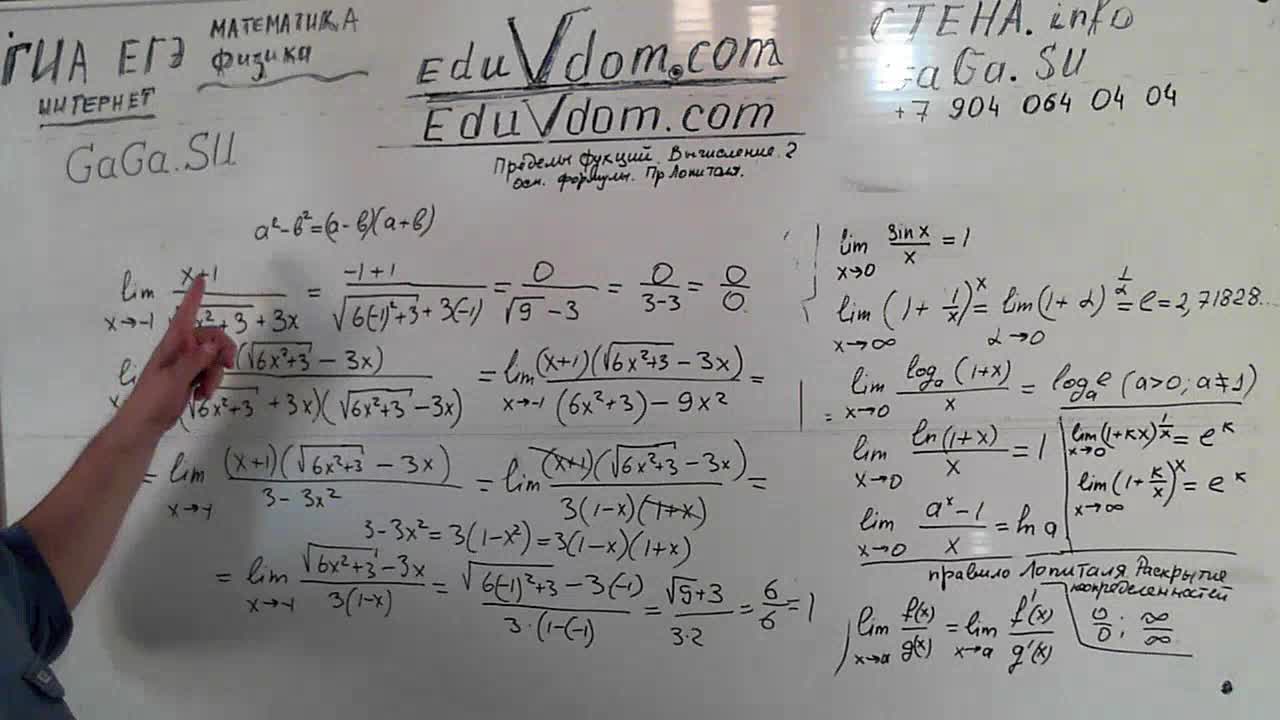 ГИА ЕГЭ МАТЕМАТИКА
физика
ИНТЕРНЕТ
GaGa.SU
EduVdom.com
EduVdom.com
Пределы фукций. Вычисление. 2
осн. формулы. Пр Лопиталя.
СТЕНА.info
GaGa.SU
+7 904 064 04 04
a²-в²=(a-в)(a+в)
lim x→-1 (x+1)/(√(6x²+3) + 3x) = (-1+1)/(√(6(-1)²+3) + 3(-1)) = 0/(√9 - 3) = 0/(3-3) = 0/0
(√(6x²+3) - 3x)/((√(6x²+3) + 3x)(√(6x²+3) - 3x)) = lim x→-1 (x+1)(√(6x²+3) - 3x)/((6x²+3) - 9x²) =
= lim x→-1 (x+1)(√(6x²+3) - 3x)/(3-3x²) = lim (x+1)(√(6x²+3) - 3x)/(3(1-x)(1+x)) =
3-3x²=3(1-x²)=3(1-x)(1+x)
= lim x→-1 (√(6x²+3) - 3x)/(3(1-x)) = (√(6(-1)²+3) - 3(-1))/(3·(1-(-1)) = (√9+3)/(3·2) = 6/6 = 1
lim x→0 sinx/x = 1
lim x→∞ (1 + 1/x)^x = lim α→0 (1+α)^(1/α) = e = 2,71828...
= lim x→0 logₐ(1+x)/x = logₐe (a>0; a≠1)
lim x→0 ln(1+x)/x = 1
lim x→0 (1+кx)^(1/x) = e^к
lim x→∞ (1+к/x)^x = e^к
lim x→0 (a^x-1)/x = ln a
правило Лопиталя Раскрытие
неопределенностей
lim x→a f(x)/g(x) = lim x→a f'(x)/g'(x)
0/0 ; ∞/∞